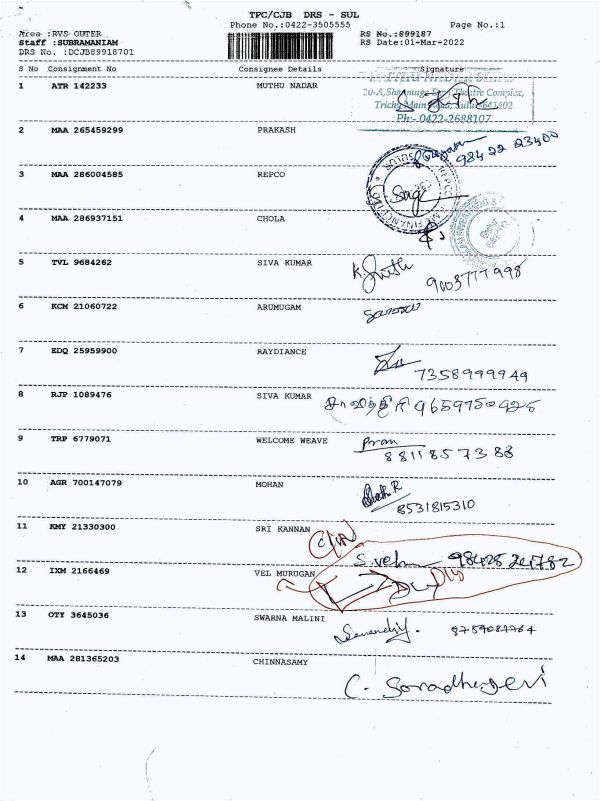 TPC/CJB DRS - SUL
Phone No.:0422-3505555 Page No.:1
Area :RVS OUTER RS No.:899187
Staff :SUBRAMANIAM RS Date:01-Mar-2022
DRS No. :DCJB89918701
S No Consignment No Consignee Details Signature
1 ATR 142233 MUTHU NADAR
Trichy Main Road, Sulur-641402
Ph:- 0422-2688107
2 MAA 265459299 PRAKASH 98422 23400
3 MAA 286004585 REPCO
4 MAA 286937151 CHOLA
5 TVL 9684262 SIVA KUMAR
9003777998
6 KCM 21060722 ARUMUGAM
7 EDQ 25959900 RAYDIANCE
7358999949
8 RJP 1089476 SIVA KUMAR 9659750925
9 TRP 6779071 WELCOME WEAVE
8811857388
10 AGR 700147079 MOHAN
8531815310
11 KMY 21330300 SRI KANNAN
S.velm
12 IXM 2166469 VEL MURUGAN Dly
13 OTY 3645036 SWARNA MALINI
14 MAA 281365203 CHINNASAMY